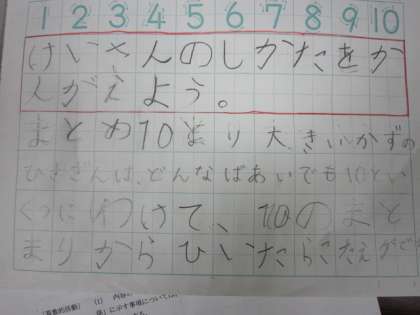 1 2 3 4 5 6 7 8 9 10
けいさんのしかたをか
んがえよう。
まとめ10より大きいかずの
ひきざんは、どんなばあいでも10とい
くつにわけて、10のまと
まりからひいたらこたえがで